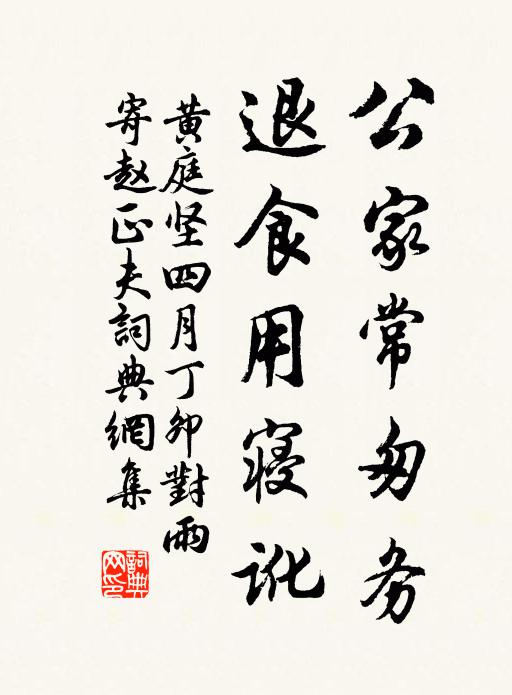 公家常匆务
退食用寝讹
黄庭坚四月丁卯對雨
寄赵正夫詞典網集
詞典网印